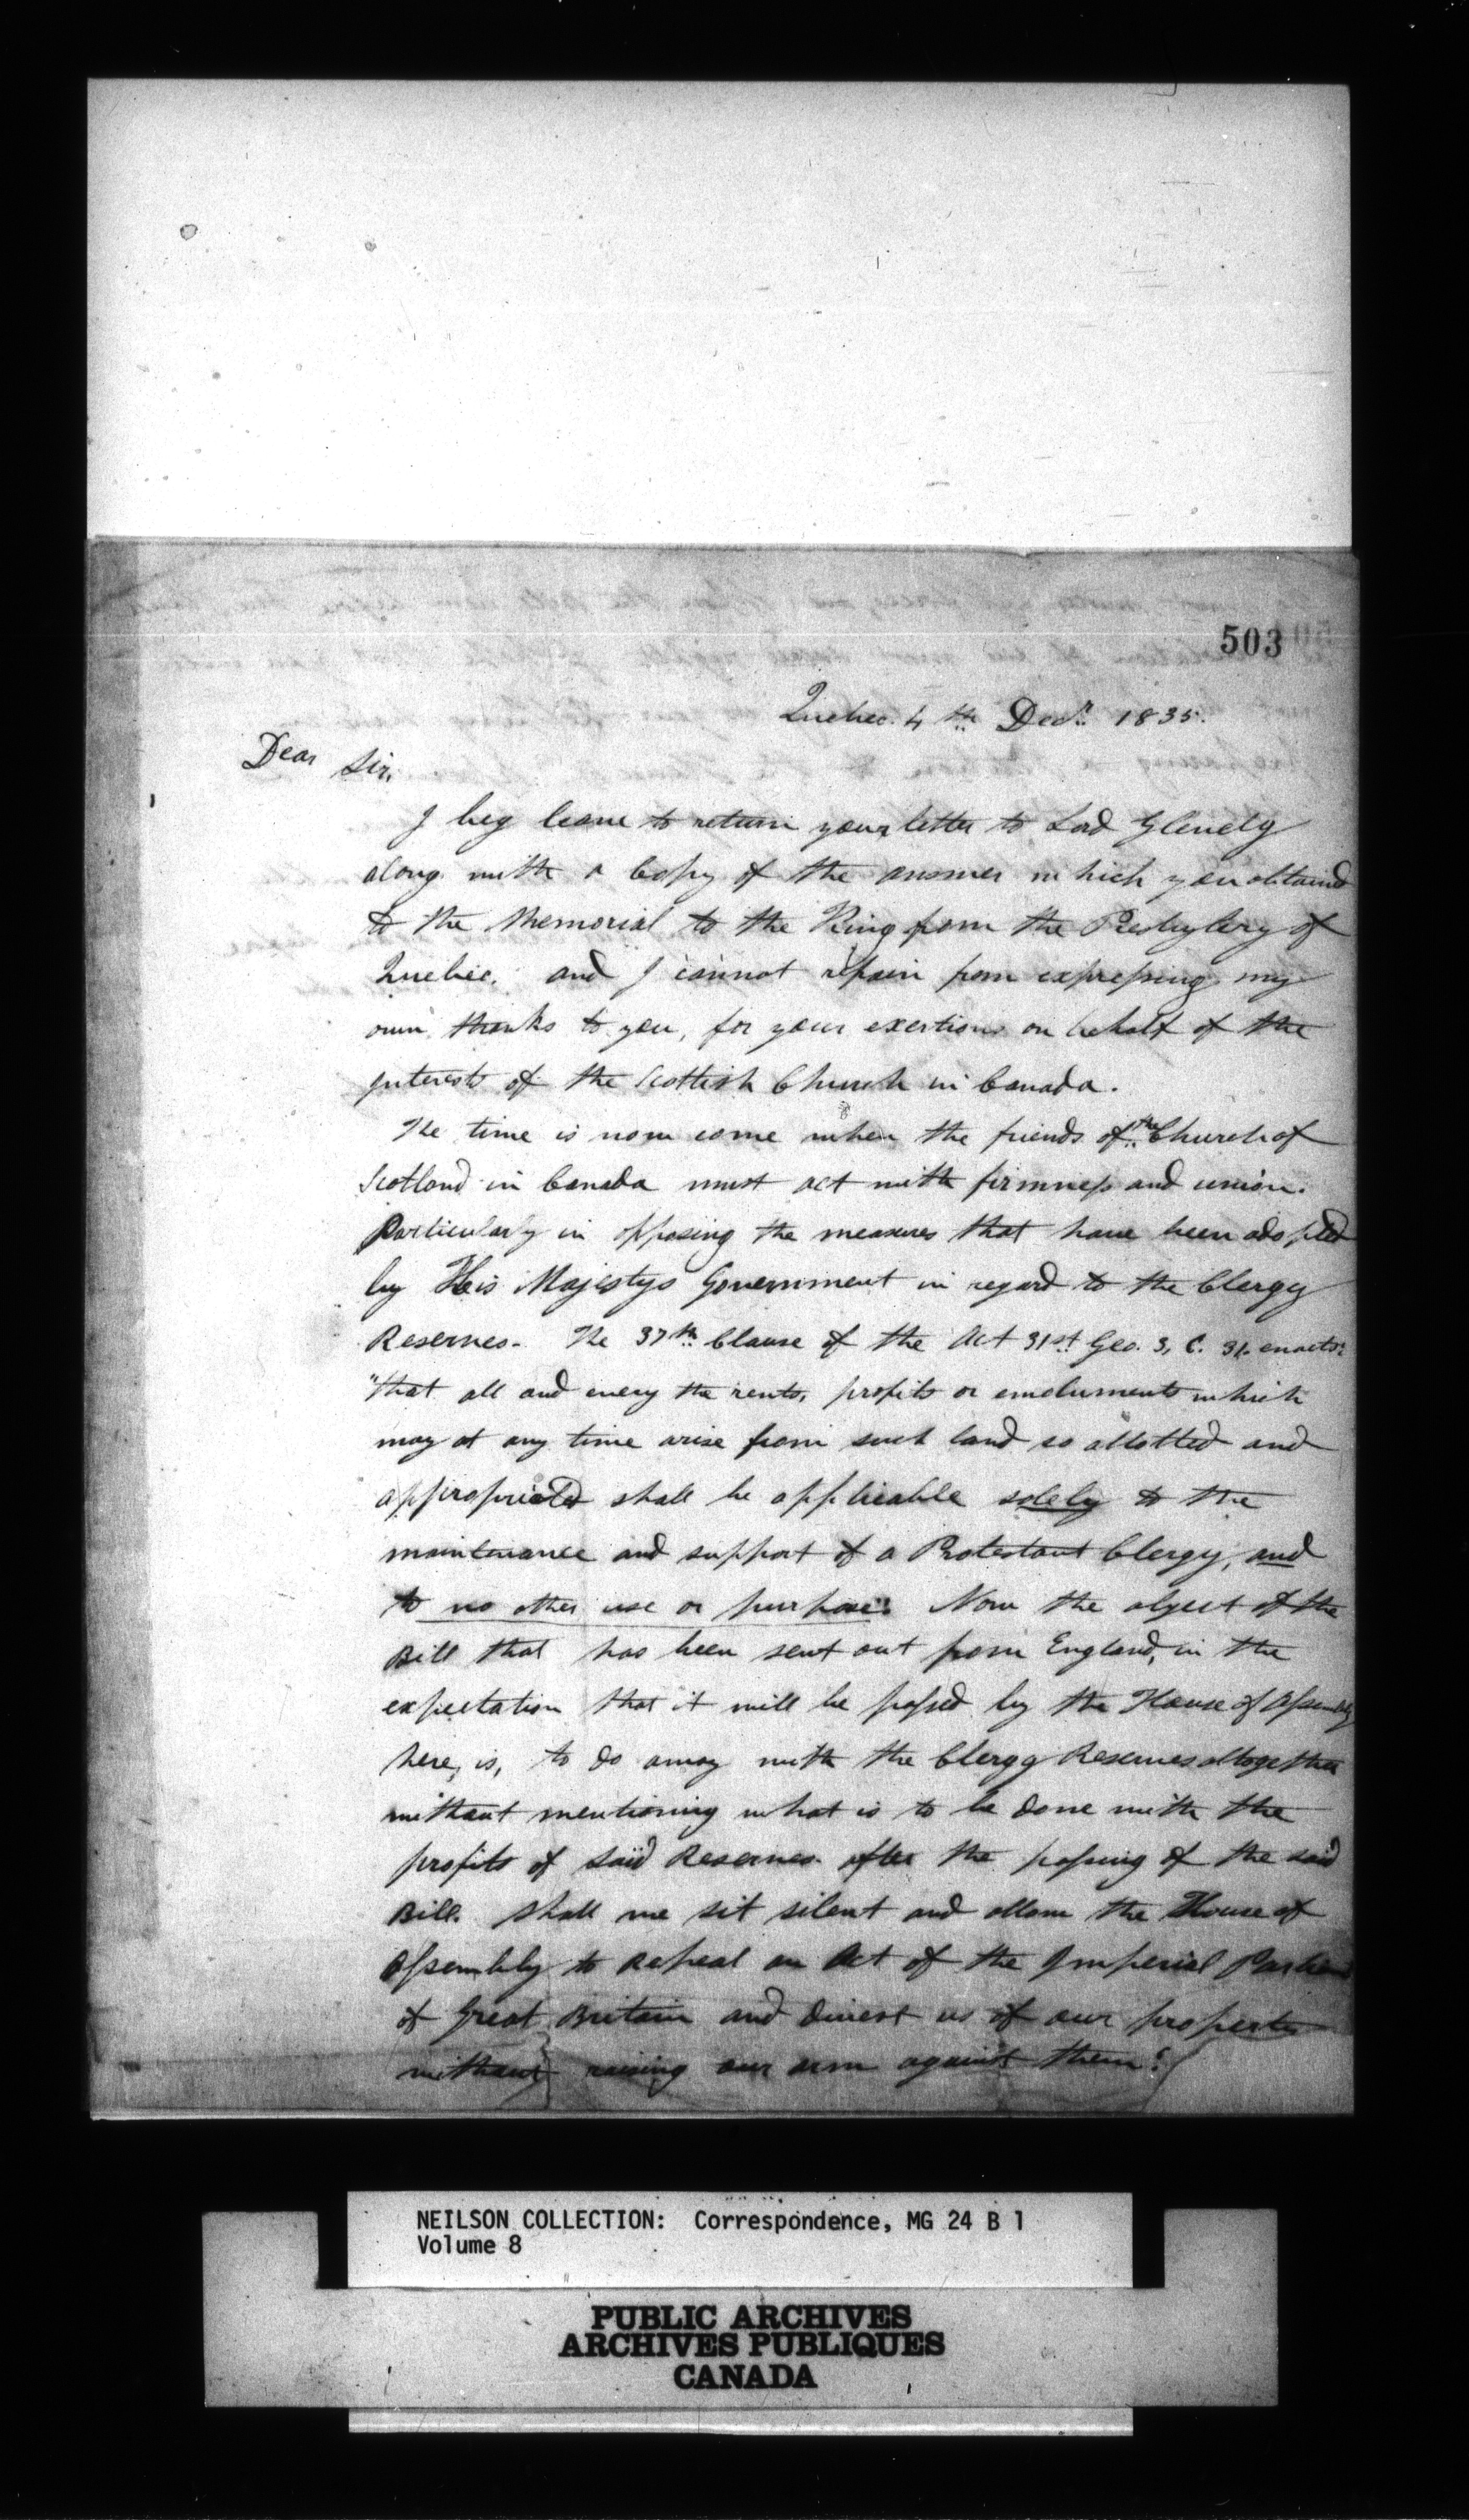 503
Quebec. 4th Decr. 1835.
Dear Sir,
I beg leave to return your letter to Lord Glenelg
along with a Copy of the answer which you obtained
to the Memorial to the King from the Presbytery of
Quebec. and I cannot refrain from expressing my
own thanks to you, for your exertions on behalf of the
interests of the Scottish Church in Canada.
The time is now come when the friends of the Church of
Scotland in Canada must act with firmness and union.
Particularly in opposing the measures that have been adopted
by His Majestys Government in regard to the Clergy
Reserves. The 37th Clause of the Act 31st Geo. 3, C. 31. enacts:
"that all and every the rents, profits or emoluments which
may at any time arise from such land so allotted and
appropriated shall be applicable solely to the
maintenance and support of a Protestant Clergy, and
to no other use or purpose". Now the object of the
Bill that has been sent out from England, in the
expectation that it will be passed by the House of Assembly
here, is, to do away with the Clergy Reserves altogether
without mentioning what is to be done with the
profits of said Reserves after the passing of the said
Bill. Shall we sit silent and allow the House of
Assembly to repeal an Act of the Imperial
of Great Britain and divest us of our property
without raising our arm against them?
NEILSON COLLECTION: Correspondence, MG 24 B 1
Volume 8
PUBLIC ARCHIVES
ARCHIVES PUBLIQUES
CANADA